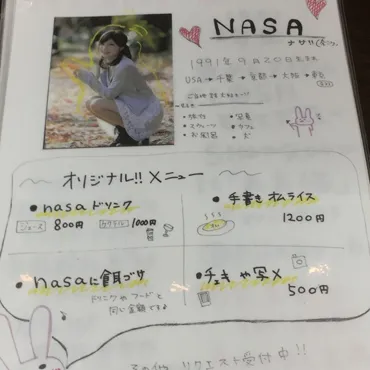 NASA
1991年9月20日生まれ
USA→千葉→京都→大阪→東京
・旅行
・写真
・カフェ
・お風呂
・犬
オリジナル!!メニュー
・nasaドリンク
ジュース 800円 カクテル 1000円
・手書きオムライス
1200円
・nasaに餌ゴサ
ドリンクやフードと
同じ金額です♪
・チェキや写メ
500円
リクエスト受付中!!